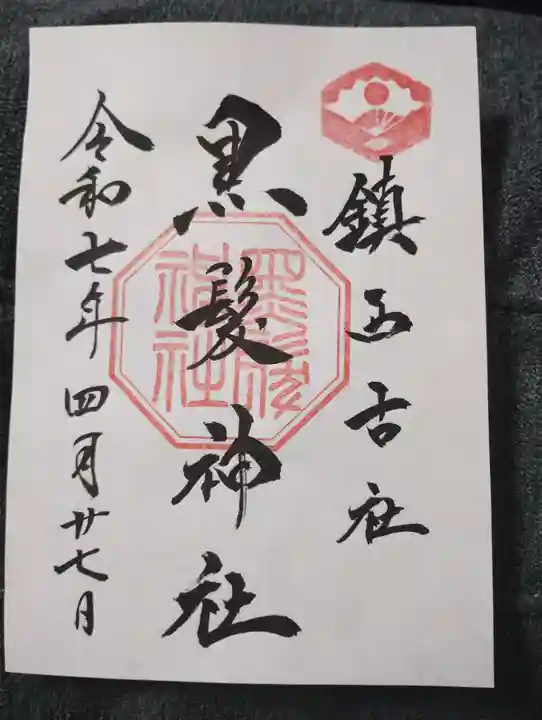 鎮西古社
黒髪神社
黒髪神社
令和七年四月廿七日